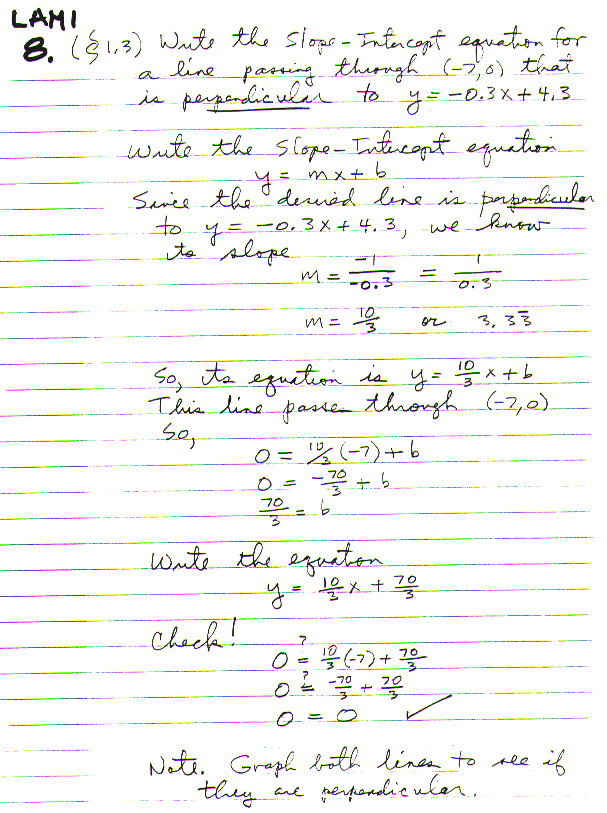 LAMI
8. (§1,3) Write the Slope-Intercept equation for
a line passing through (-7,0) that
is perpendicular to y = -0.3x + 4.3
Write the Slope-Intercept equation
y = mx + b
Since the desired line is perpendicular
to y = -0.3x + 4.3, we know
its slope
m = -1/-0.3 = 1/0.3
m = 10/3 or 3.33̅
So, its equation is y = 10/3 x + b
This line passes through (-7,0)
So,
0 = 10/3 (-7) + b
0 = -70/3 + b
70/3 = b
Write the equation
y = 10/3 x + 70/3
Check!
0 ≟ 10/3 (-7) + 70/3
0 ≟ -70/3 + 70/3
0 = 0 ✓
Note. Graph both lines to see if
they are perpendicular.